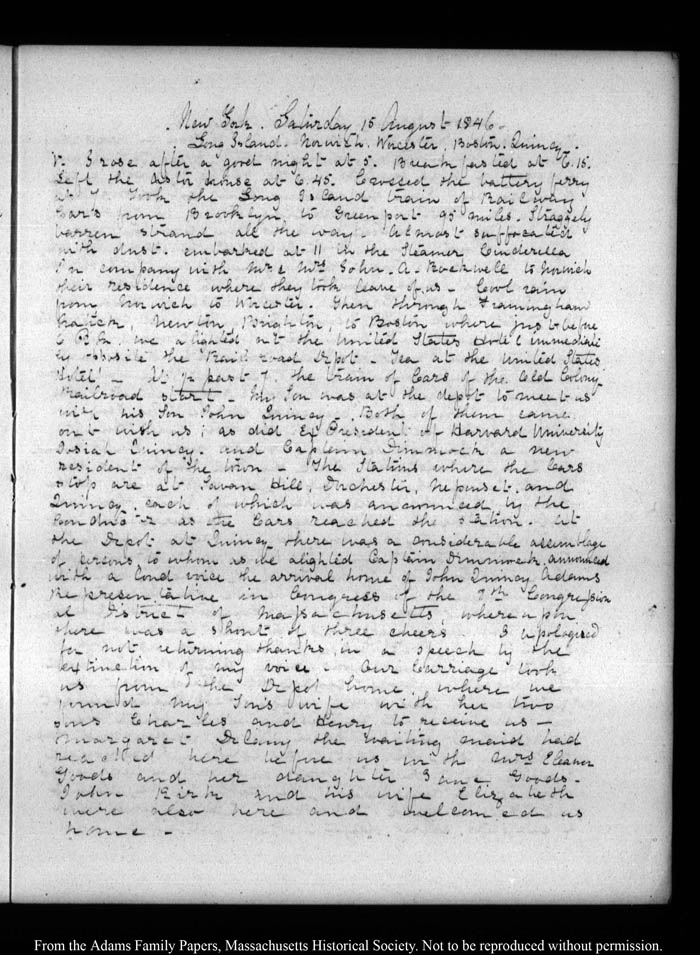 New York. Saturday 15 August 1846.
Long Island. Norwich. Worcester, Boston. Quincy.
V. I rose after a good night at 5. Breakfasted at 6.15.
Left the Astor house at 6.45. Crossed the battery ferry
Took the Long Island train of Railway
Cars from Brooklyn, to Greenport 95 miles. Straggely
barren strand all the way. Almost suffocated
with dust. embarked at 11 in the Steamer Cinderella
In company with Mr & Mrs John. A. Rockwell to Norwich
their residence where they took leave of us. Cool rain
from Norwich to Worcester. Then through Framingham
Natick, Newton, Brighton, to Boston where just before
6 P.M. we alighted at the United States Hotel immediate
ly opposite the Rail road Depot. Tea at the United States
Hotel. At ½ past 7. the train of Cars of the Old Colony
Railroad start. My Son was at the depot to meet us
with his Son John Quincy. Both of them came
out with us; as did Ex President of Harvard University
Josiah Quincy. and Captain Dimmock a new
resident of the town. The Stations where the Cars
stop are at Savan Hill, Dorchester, Neponset. and
Quincy. each of which was announced by the
Conductor as the Cars reached the station. At
the Depot at Quincy there was a considerable assemblage
of persons, to whom as we alighted Captain Dimmock, announced
with a loud voice the arrival home of John Quincy Adams
Representative in Congress of the 8th Congression
al District of Massachusetts, whereupon
there was a shout of three cheers. I apologised
for not returning thanks, in a speech by the
extinction of my voice. Our Carriage took
us from the Depot home. where we
found my Son's wife with her two
sons Charles and Henry to receive us —
Margaret Delany the waiting maid had
reached here before us with Mrs Eleanor
Goods and her daughter Jane Goods.
John Kirk and his wife Elizabeth
were also here and welcomed us
home —
From the Adams Family Papers, Massachusetts Historical Society. Not to be reproduced without permission.